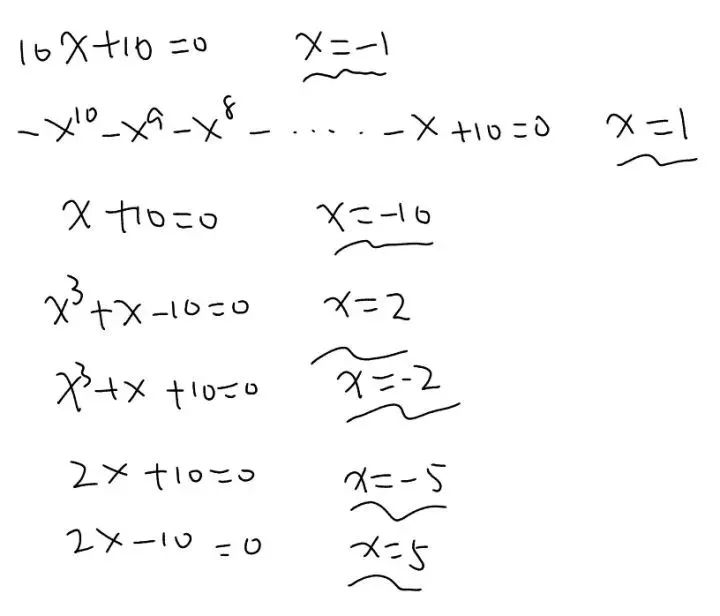 10x+10=0 x=-1
-x¹⁰-x⁹-x⁸-.....-x+10=0 x=1
x+10=0 x=-10
x³+x-10=0 x=2
x³+x+10=0 x=-2
2x+10=0 x=-5
2x-10=0 x=5